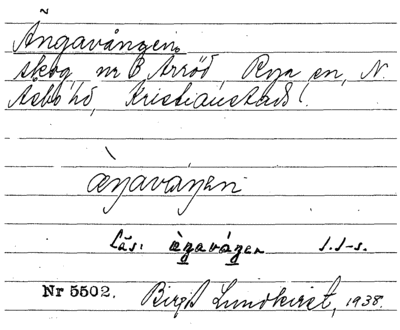 Ängavången.
skog, nr 8 Arröd, Rya sn, N.
Åsbo hd, Kristianstads l.
æŋavåŋen
Läs: ègavágen s.1-s.
Nr 5502. Birgit Lundkvist, 1938.